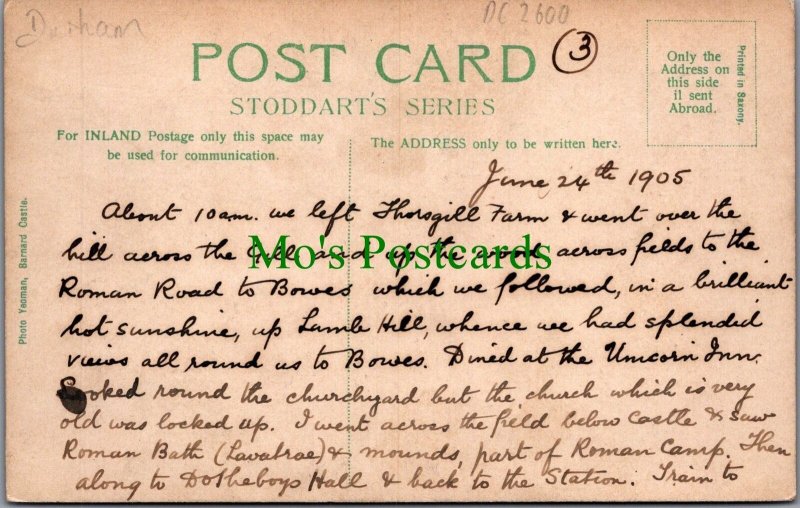 Durham
DC 2600
3
POST CARD
STODDART'S SERIES
Only the
Address on
this side
if sent
Abroad.
Printed in Saxony.
For INLAND Postage only this space may
be used for communication.
The ADDRESS only to be written here.
Photo Yeoman, Barnard Castle.
June 24th 1905
About 10 am. we left Thorsgill Farm & went over the
hill across the Gill and up the wood across fields to the
Roman Road to Bowes which we followed, in a brilliant
hot sunshine, up Lamb Hill, whence we had splendid
views all round us to Bowes. Dined at the Unicorn Inn.
Looked round the churchyard but the church which is very
old was locked up. I went across the field below Castle & saw
Roman Bath (Lavatrae) & mounds, part of Roman Camp. Then
along to Dotheboys Hall & back to the Station. Train to
Mo's Postcards